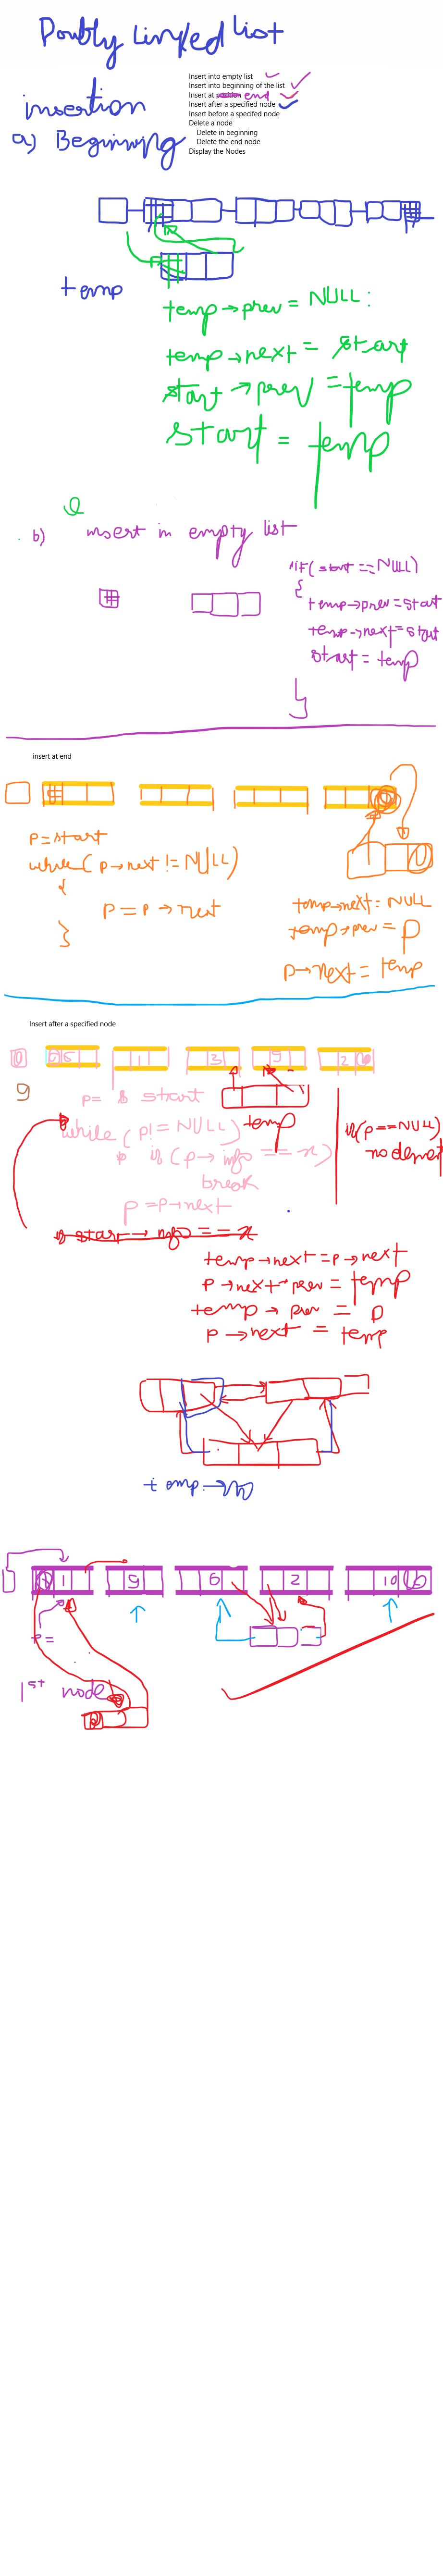 Doubly Linked list
Insert into empty list
Insert into beginning of the list
Insert at position end
Insert after a specified node
Insert before a specifed node
Delete a node
Delete in beginning
Delete the end node
Display the Nodes
insertion
a) Beginning
temp
temp→prev = NULL;
temp→next = start
start→prev = temp
start = temp
b) insert in empty list
if(start == NULL)
{
temp→prev = start
temp→next = start
start = temp
}
insert at end
p = start
while( p→next != NULL)
{
p = p → next
}
temp→next = NULL
temp→prev = p
p→next = temp
Insert after a specified node
5 1 3 9 2
9
p = start
temp
while( p != NULL)
if( p→info == x)
break
p = p→next
if(p == NULL)
if start→info == x
temp→next = p→next
p→next→prev = temp
temp→prev = p
p→next = temp
1 5 6 2 10
p =
1st node